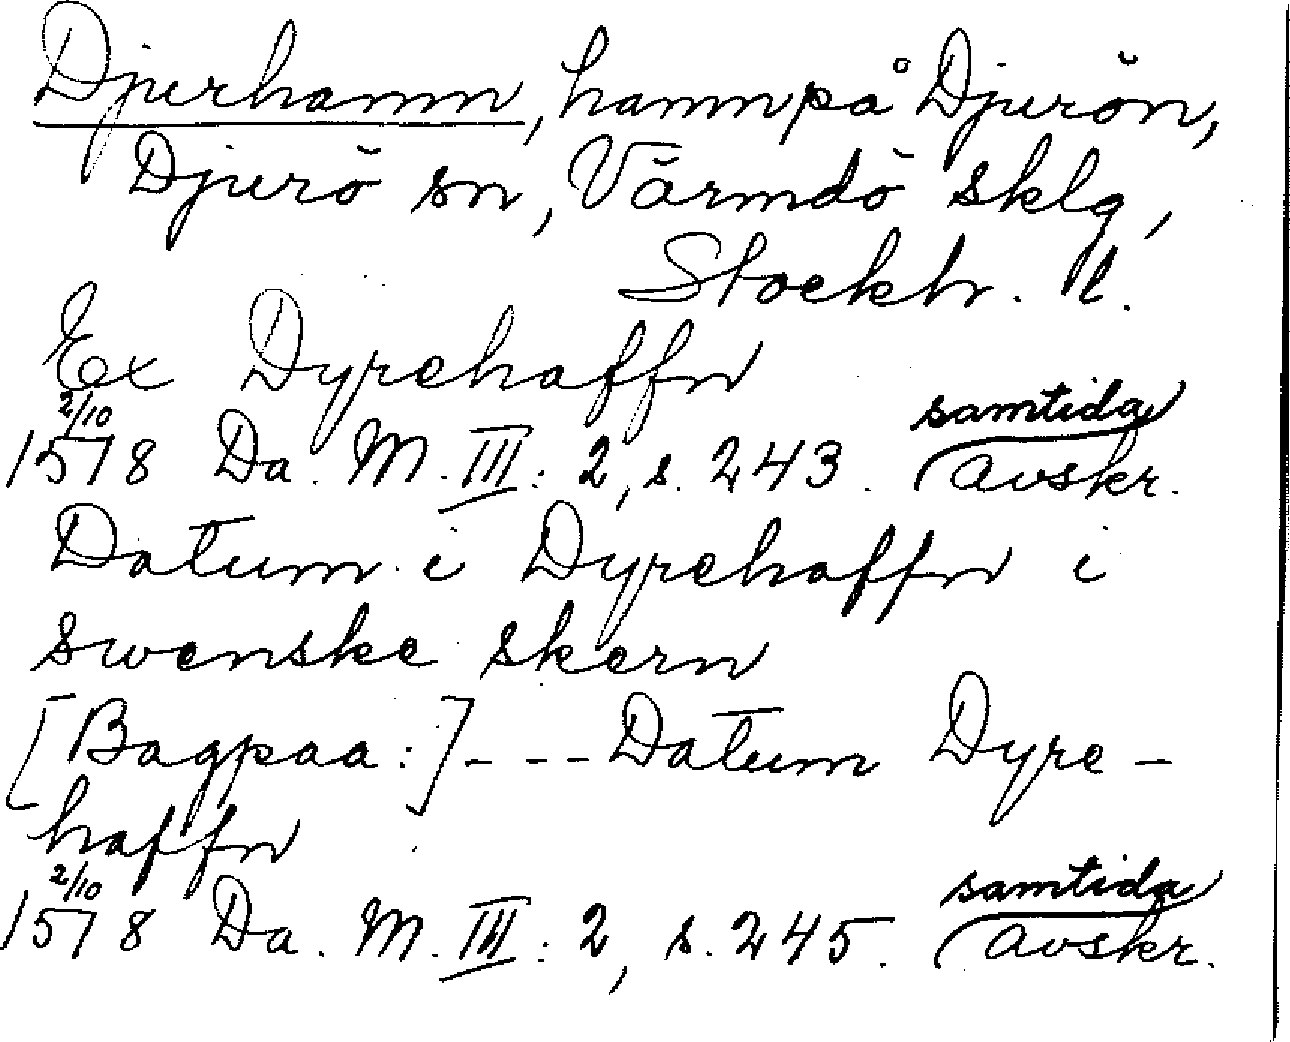 Djurhamn, hamn på Djurön,
Djurö sn, Värmdö sklg,
Stockh. l.
Ex Dyrehaffn
2/10 samtida
1578 Da. M. III: 2, s. 243. avskr.
Datum i Dyrehaffn i
swenske skern
[Bagpaa:] - - - Datum Dyre-
haffn
2/10 samtida
1578 Da. M. III: 2, s. 245. avskr.